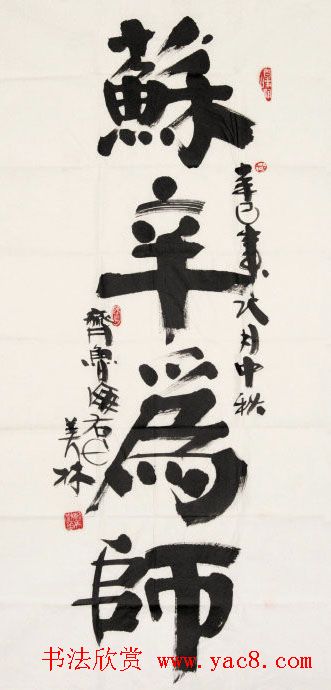 蘇辛為師
辛巳年八月中秋
齊魯
美林
书法欣赏 www.yac8.com